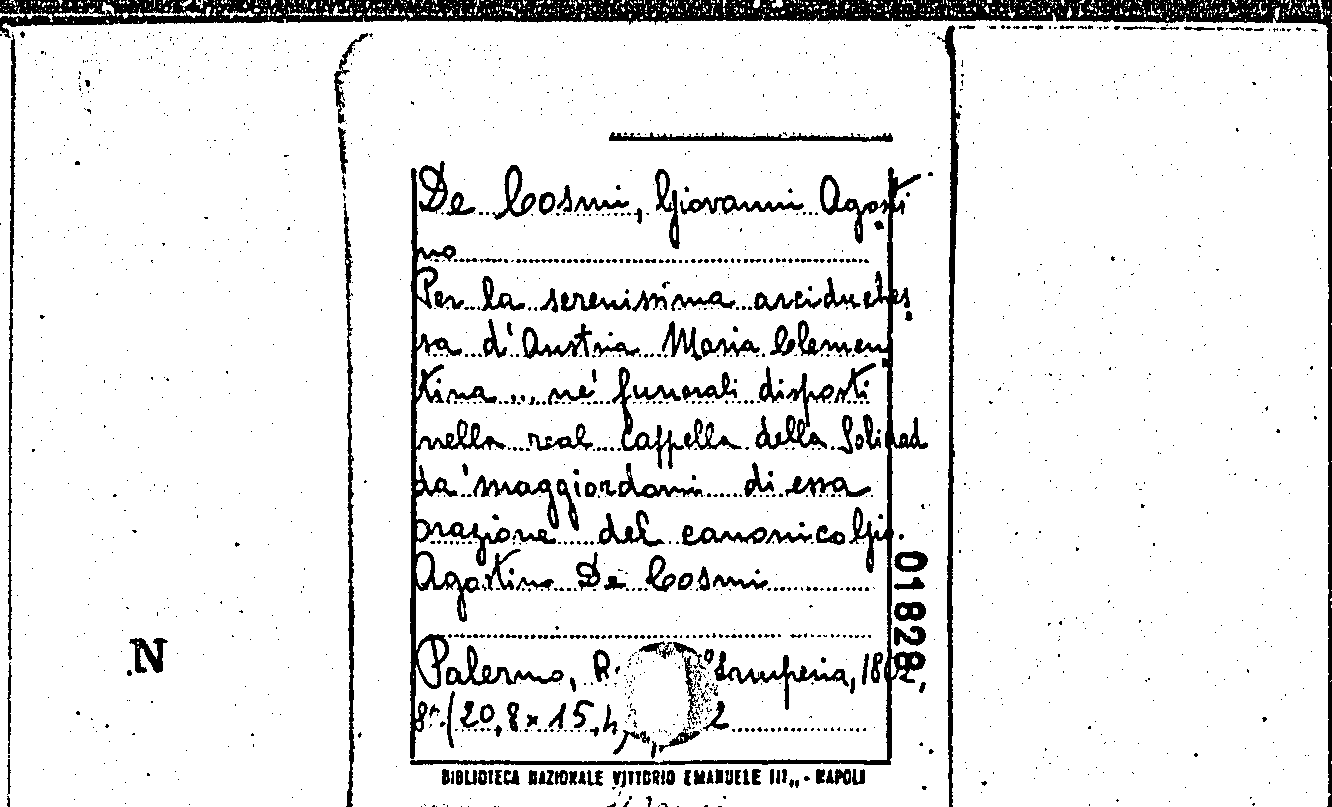 De Cosmi, Giovanni Agosti
no
Per la serenissima arciduches
sa d'Austria Maria Clemen
tina ... né funerali disposti
nella real Cappella della Solidad
da' maggiordomi di essa
orazione del canonico Gio.
Agostino De Cosmi
01828
N
Palermo, R. Stamperia, 1802,
8°. (20,8 x 15, 2
BIBLIOTECA NAZIONALE VITTORIO EMANUELE III,, - NAPOLI